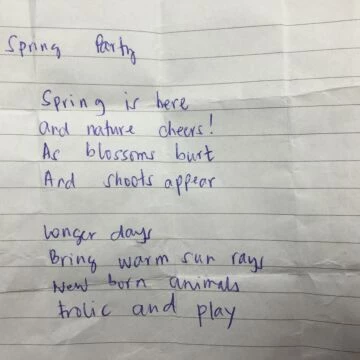 Spring Party
Spring is here
and nature cheers!
As blossoms burt
And shoots appear
Longer days
Bring warm sun rays
New born animals
frolic and play